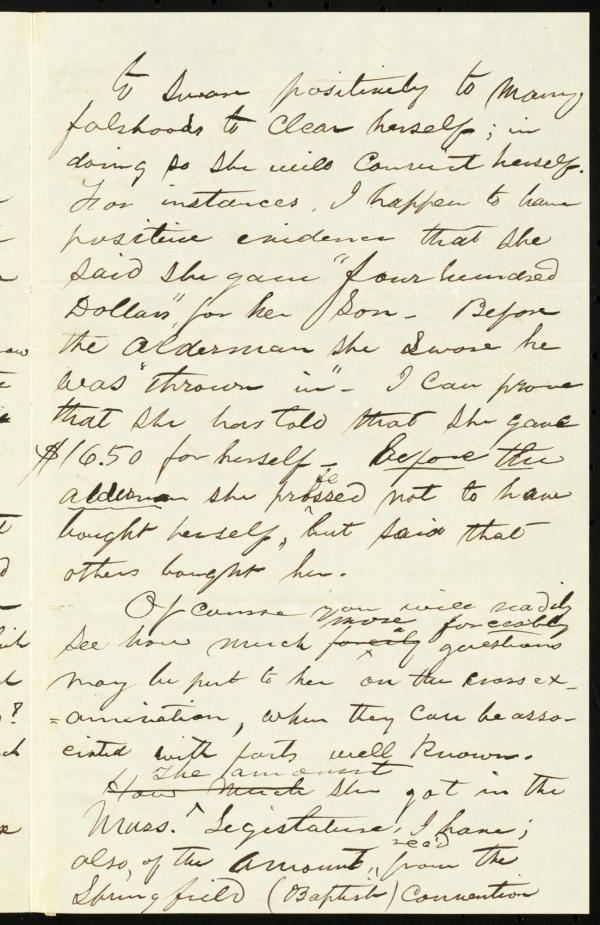 to swear positively to many
falshoods to clear herself; in
doing so she will convict herself.
For instances, I happen to have
positive evidence that she
said she gave "four hundred
Dollars", for her Son - Before
the Alderman she swore he
was "thrown in" - I can prove
that she has told that she gave
$16.50 for herself - Before the
alderman she professed not to have
bought herself, but said that
others bought her.
Of course you will readily
see how much forcibly more forceably questions
may be put to her on the cross ex-
=amination, when they can be asso-
ciated with facts well known.
How much The amount she got in the
Mass. Legislature, I have;
also, of the amount, rec'd from the
Springfield (Baptist) Convention